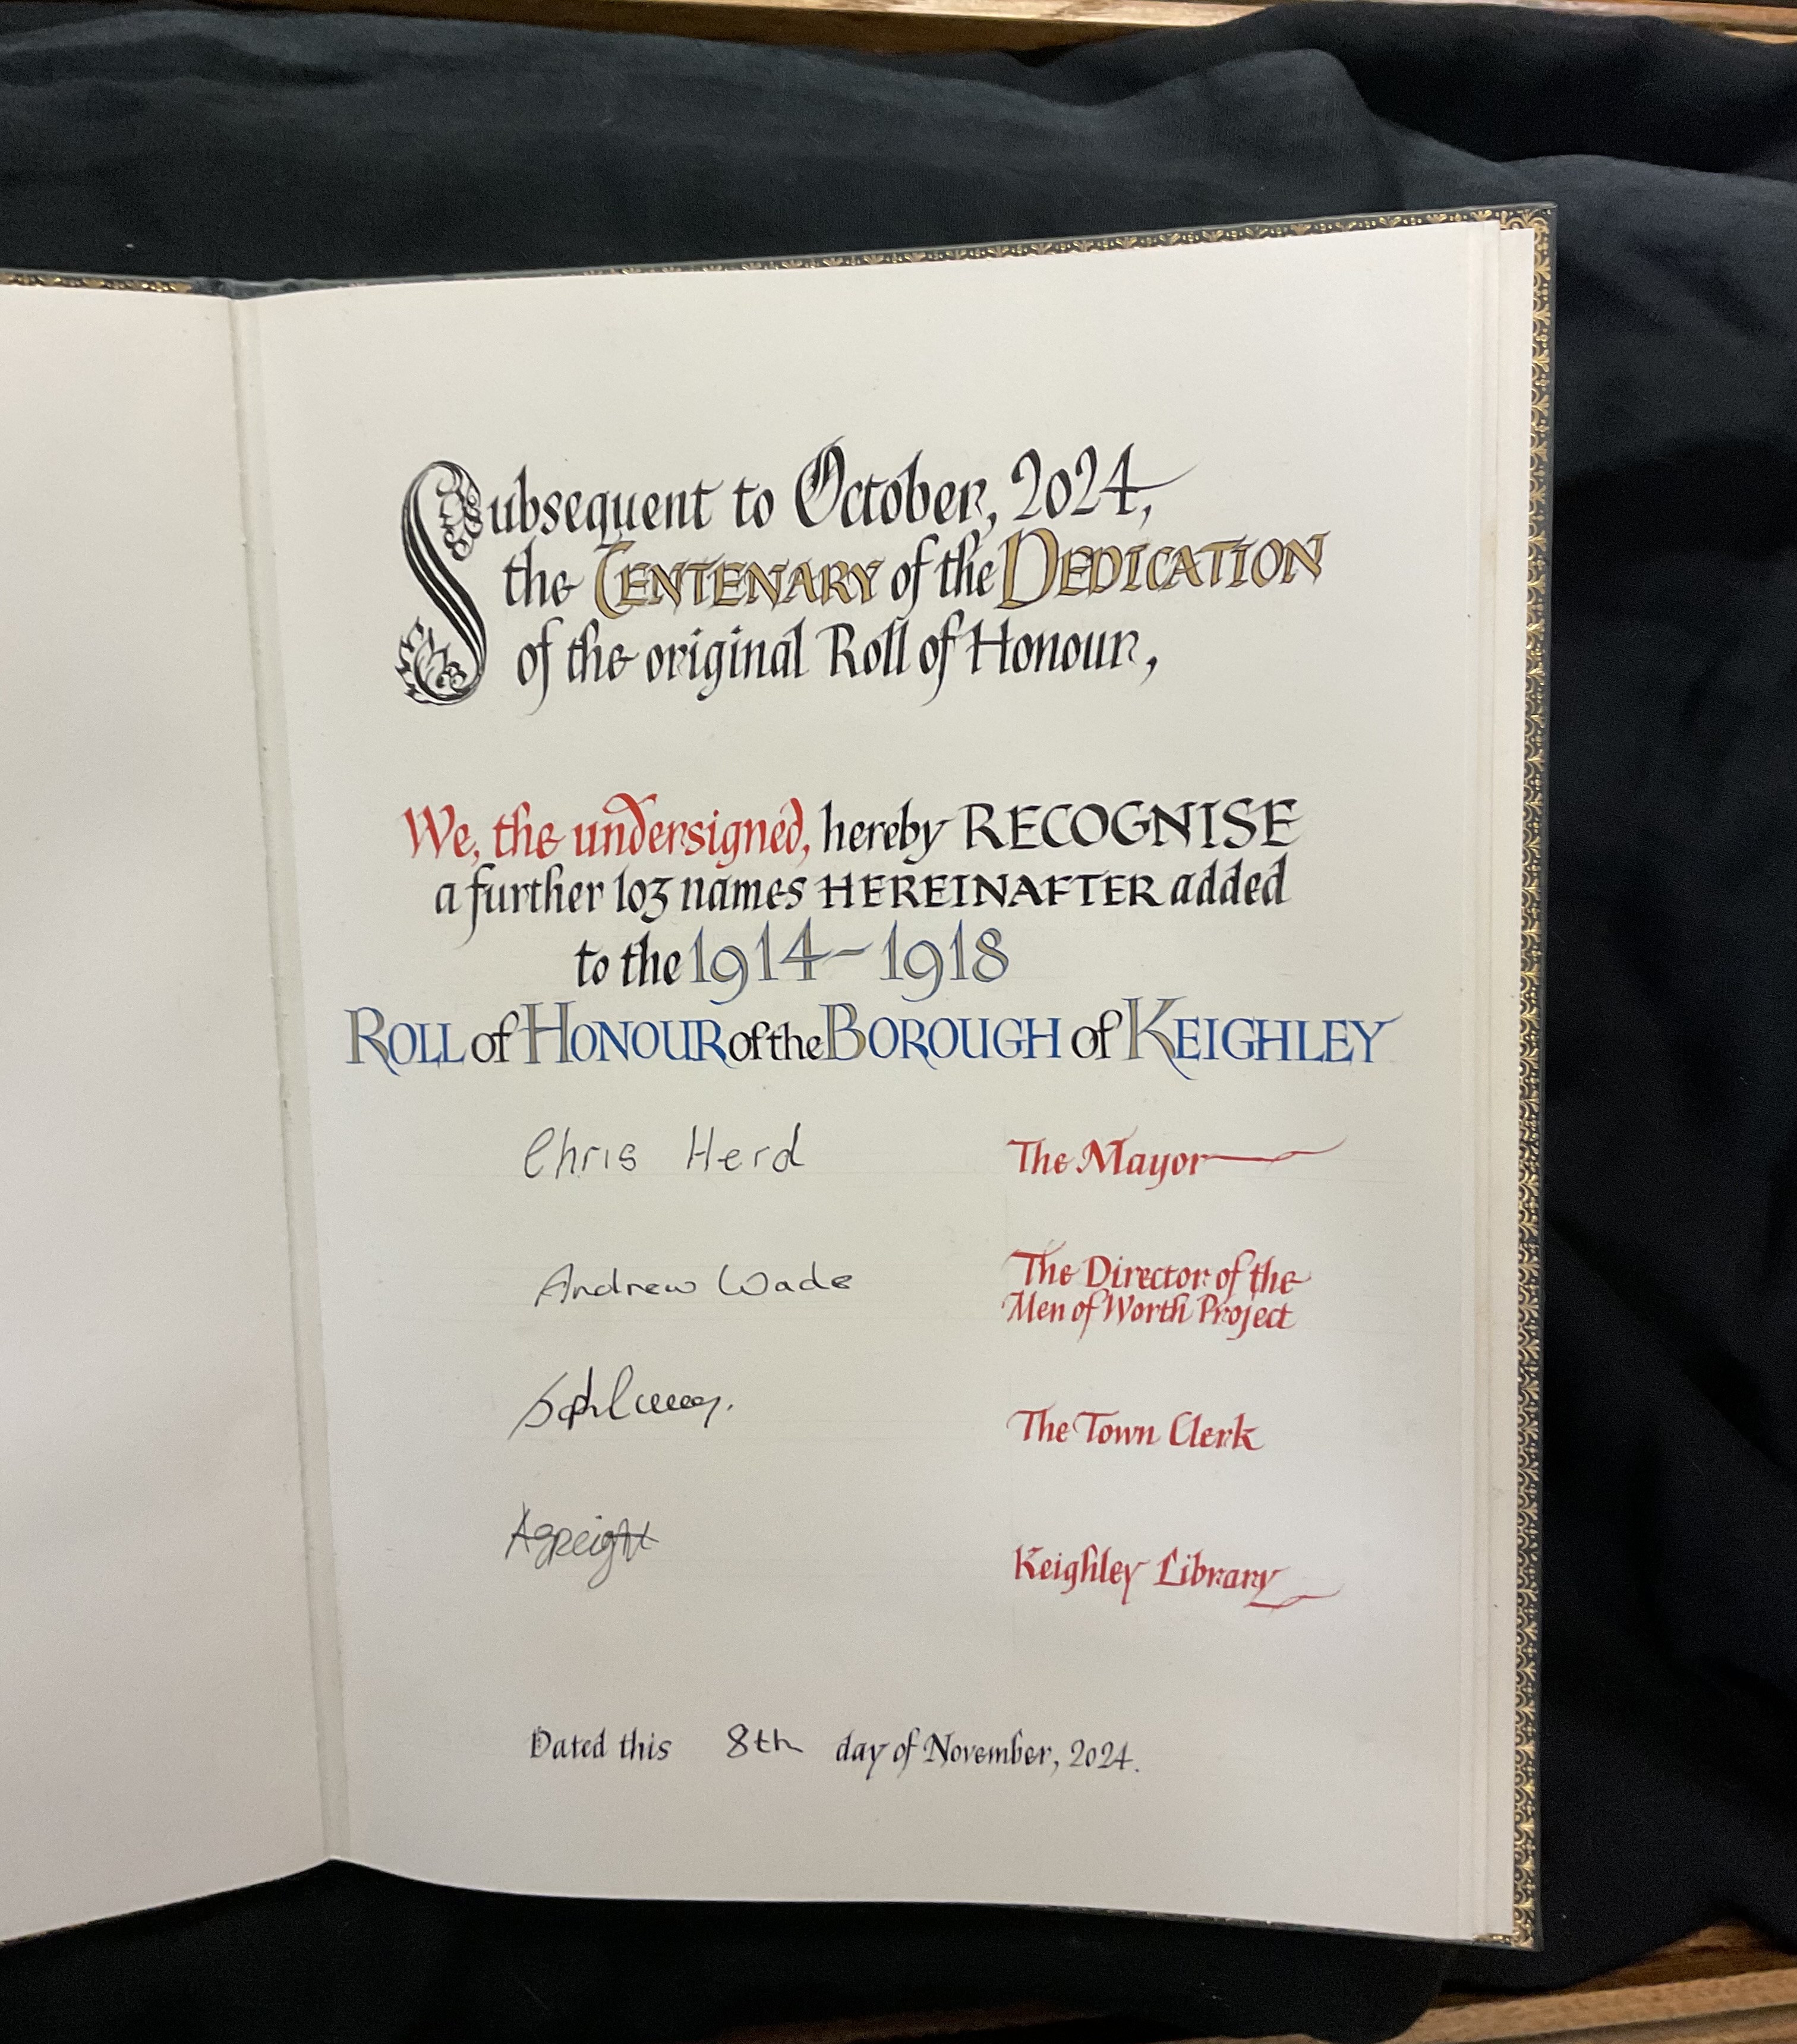 Subsequent to October, 2024,
the CENTENARY of the DEDICATION
of the original Roll of Honour,
We, the undersigned, hereby RECOGNISE
a further 103 names HEREINAFTER added
to the 1914-1918
ROLL of HONOUR of the BOROUGH of KEIGHLEY
Chris Herd The Mayor
Andrew Wade The Director of the
Men of Worth Project
The Town Clerk
Keighley Library
Dated this 8th day of November, 2024.